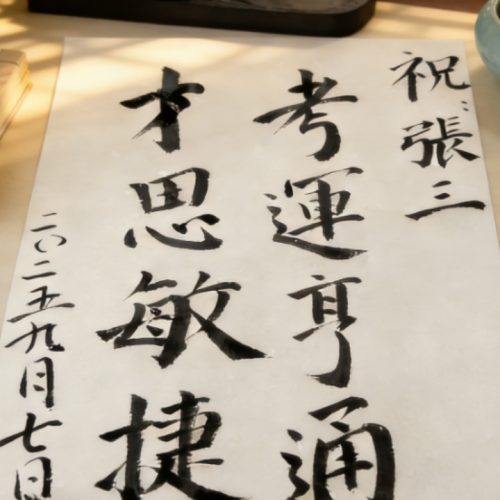 祝：張三
考運亨通
才思敏捷
二〇二五九月七日